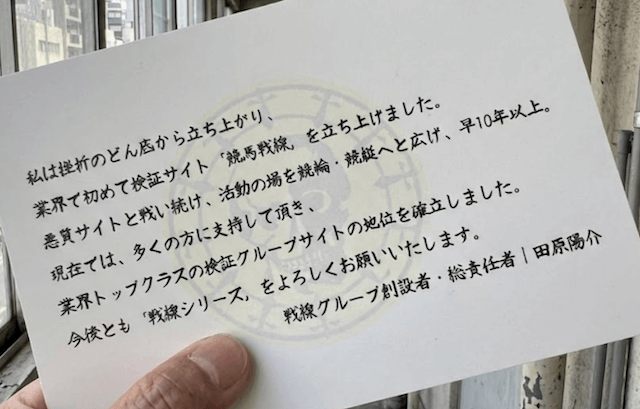 私は挫折のどん底から立ち上がり、
業界で初めて検証サイト「競馬戦線」を立ち上げました。
悪質サイトと戦い続け、活動の場を競輪・競艇へと広げ、早10年以上。
現在では、多くの方に支持して頂き、
業界トップクラスの検証グループサイトの地位を確立しました。
今後とも「戦線シリーズ」をよろしくお願いいたします。
戦線グループ創設者・総責任者|田原陽介